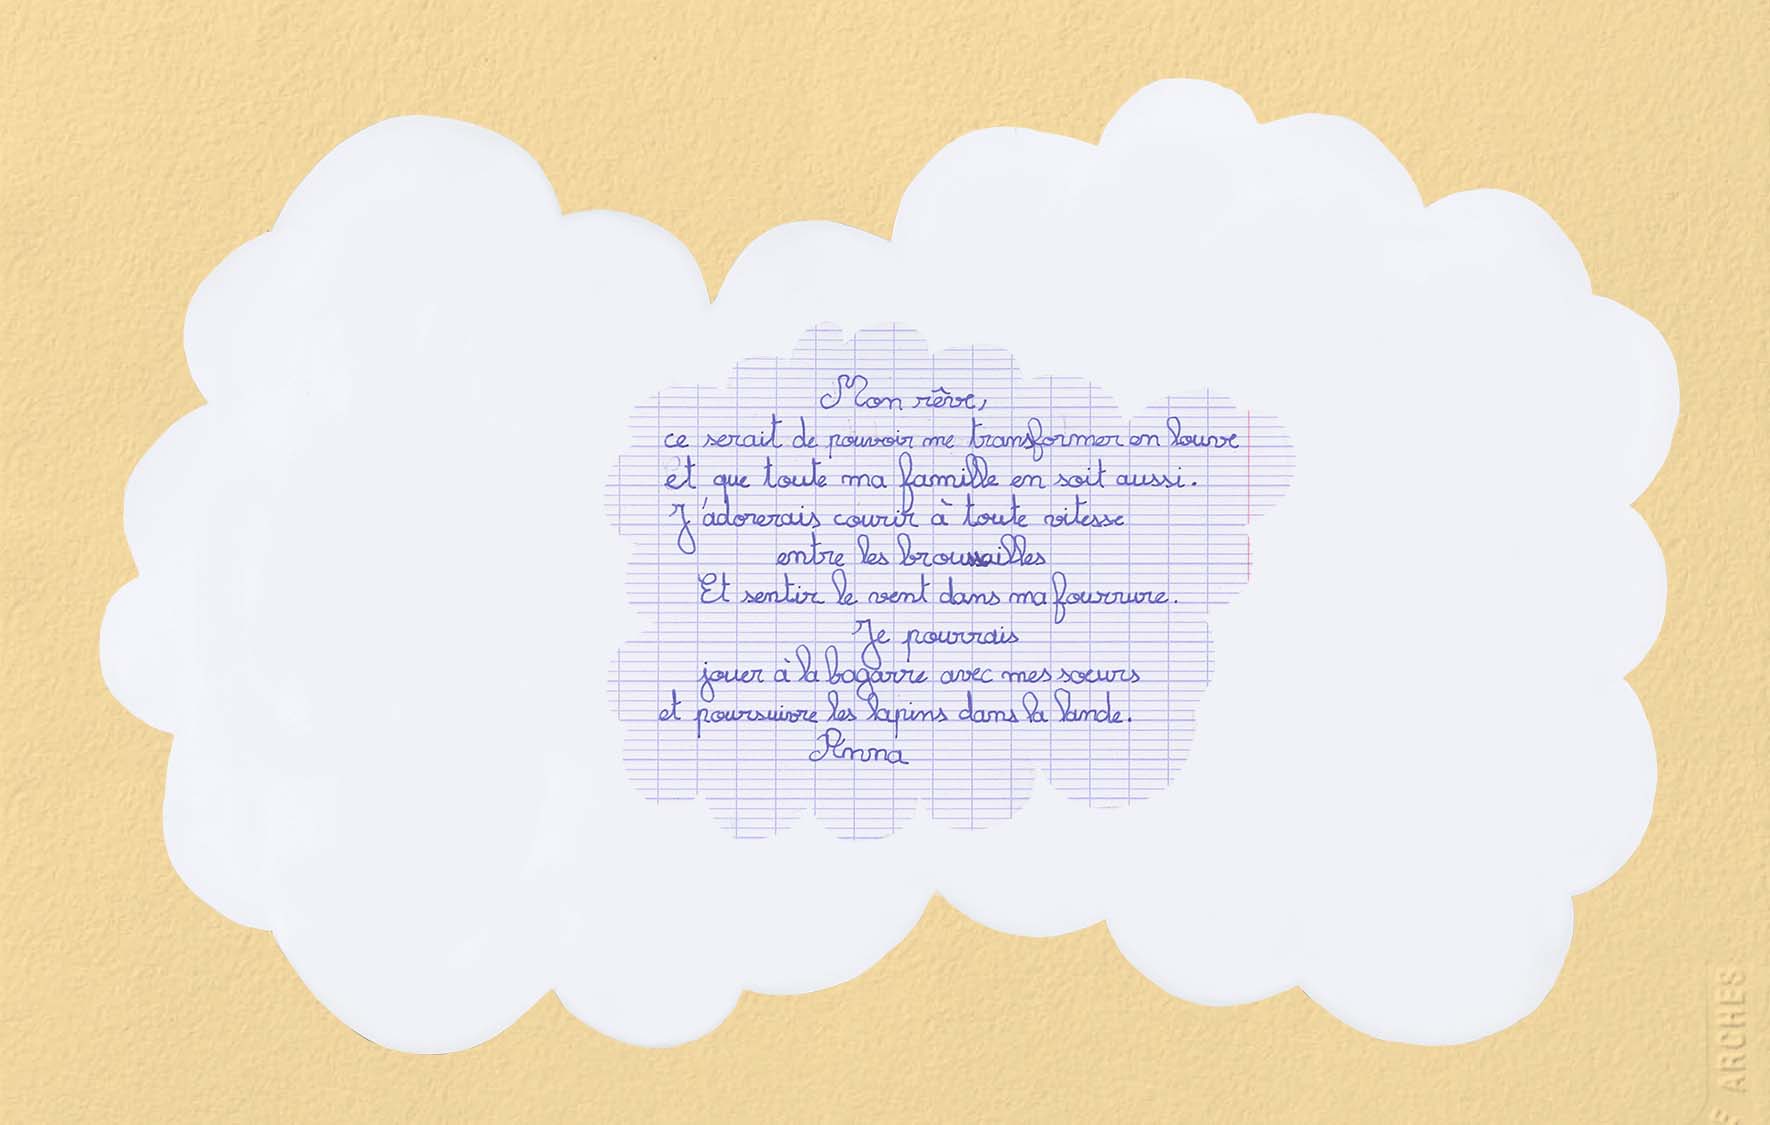 Mon rêve,
ce serait de pouvoir me transformer en louve
et que toute ma famille en soit aussi.
J'adorerais courir à toute vitesse
entre les broussailles
Et sentir le vent dans ma fourrure.
Je pourrais
jouer à la bagarre avec mes soeurs
et poursuivre les lapins dans la lande.
Anna
ARCHES